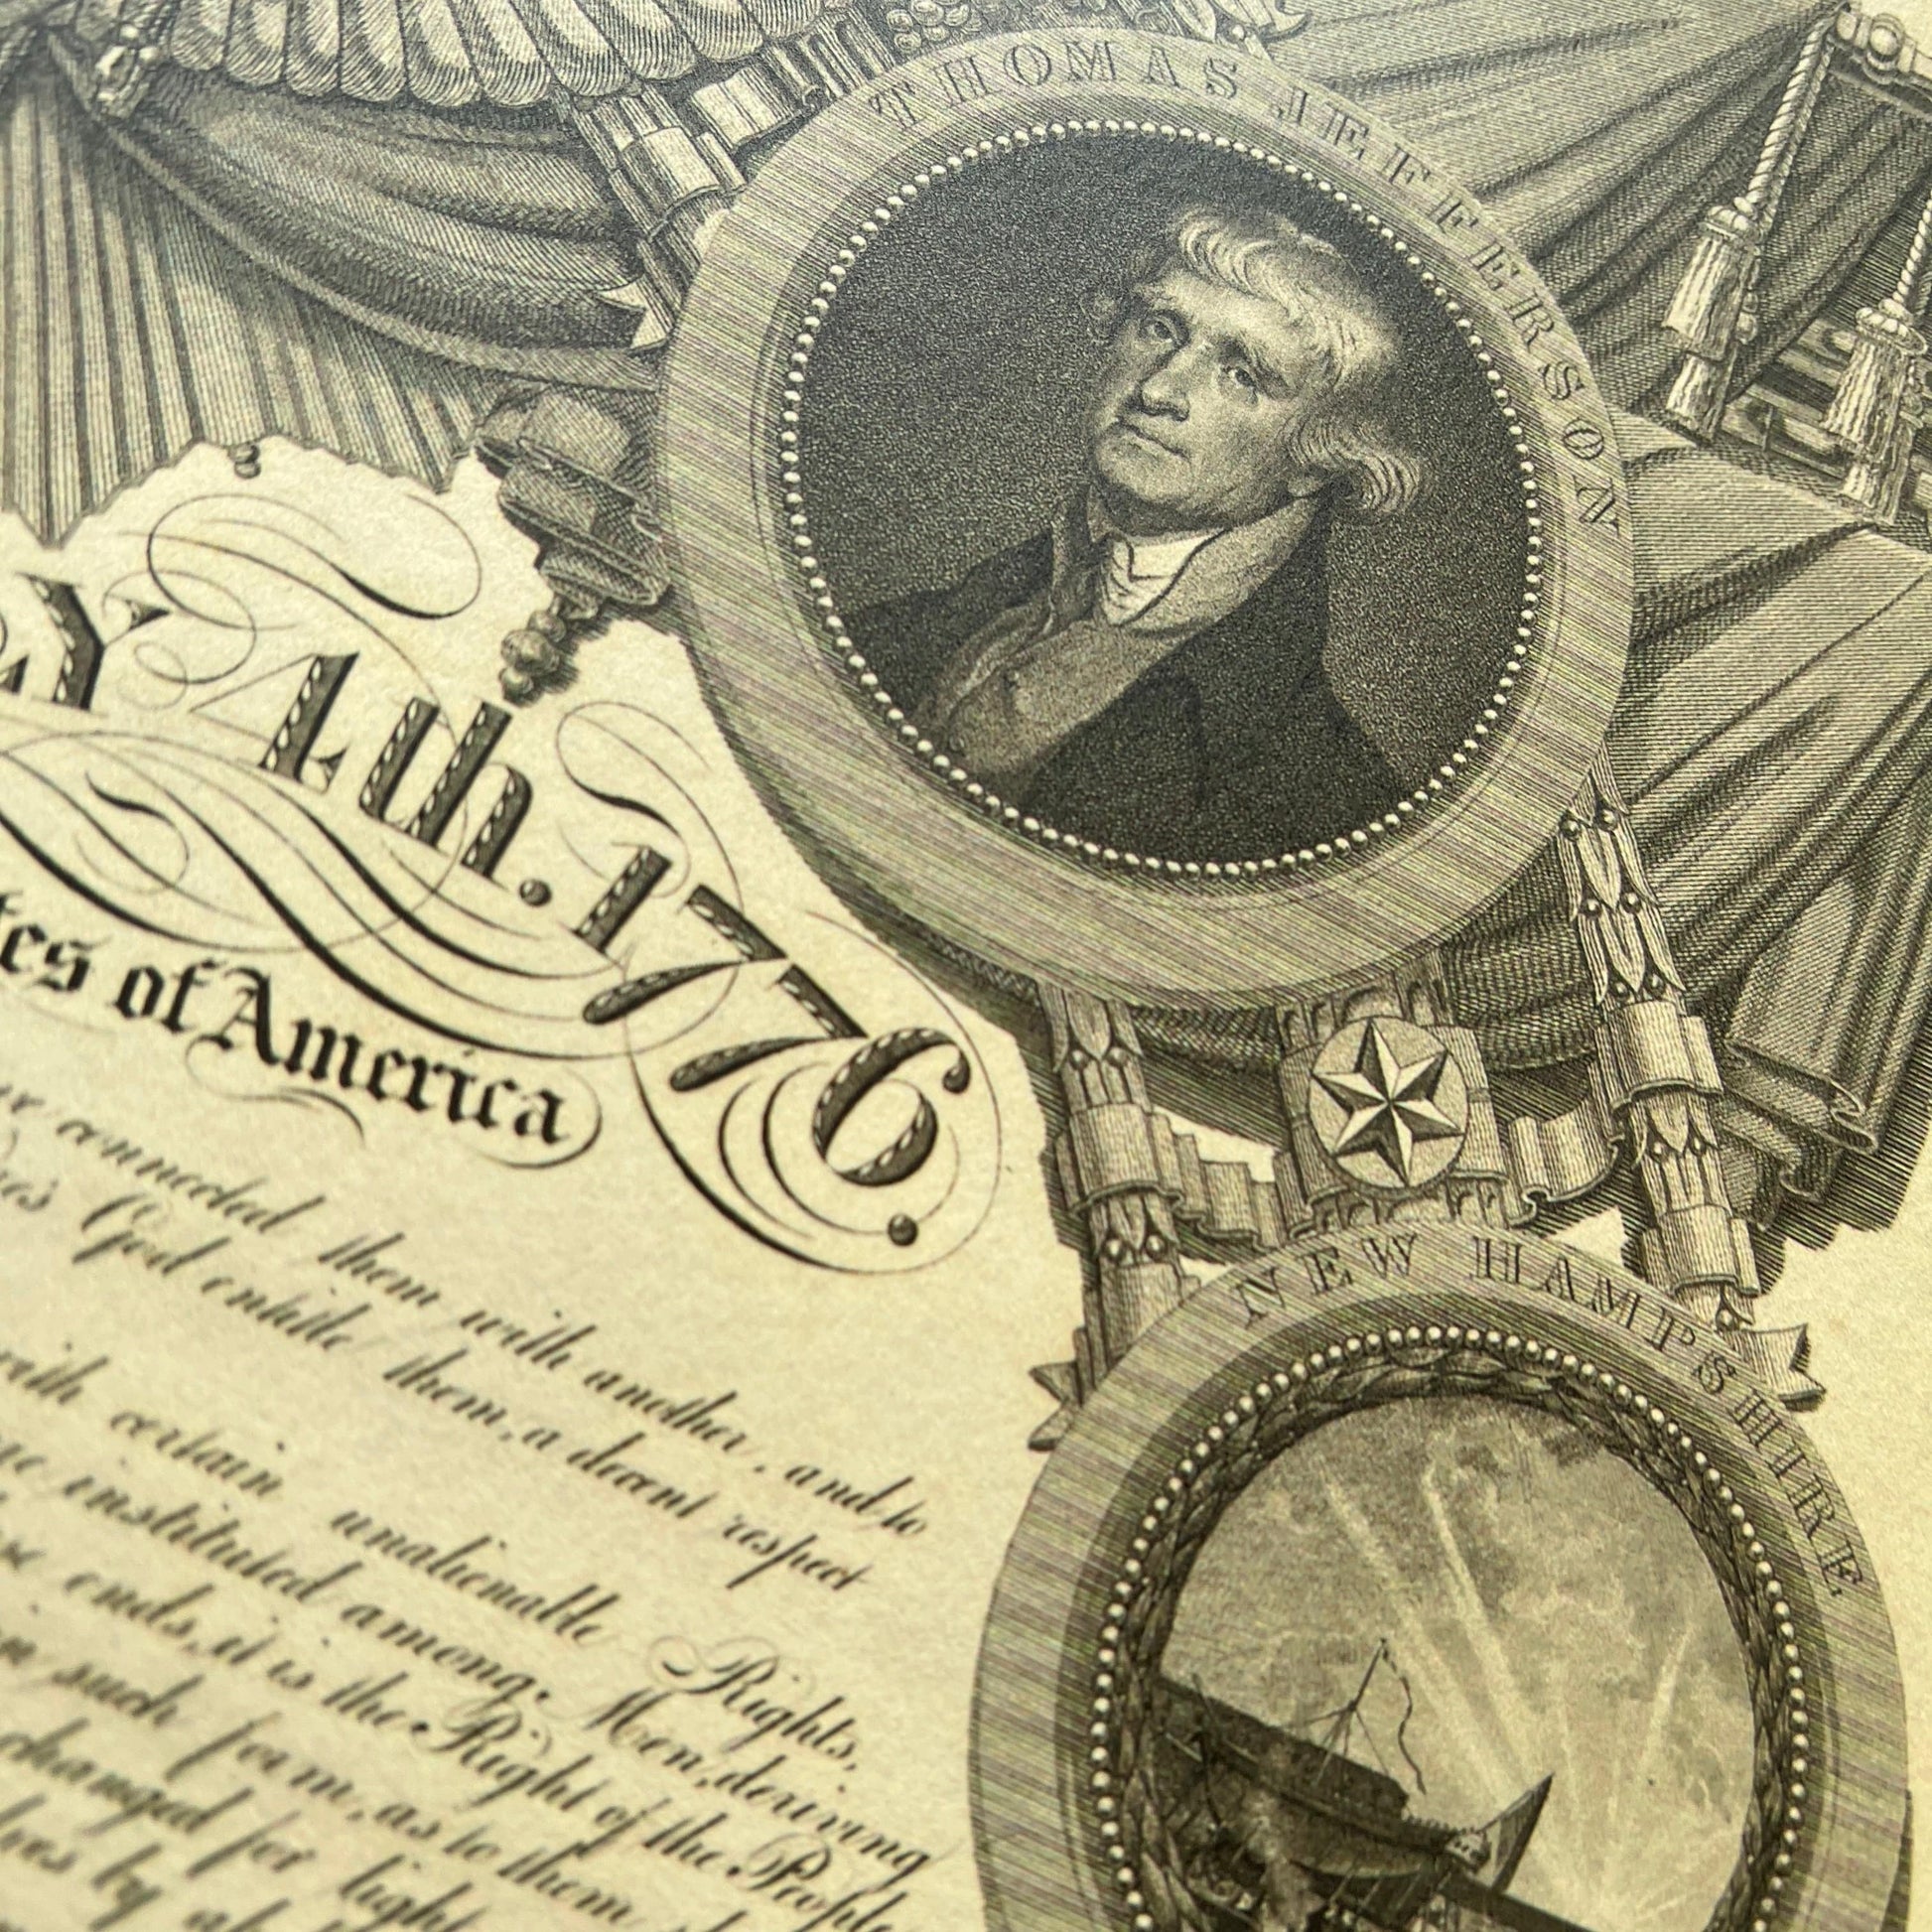 THOMAS JEFFERSON
Y 4th. 1776.
tes of America
NEW HAMPSHIRE
connected them with another, and to
God entitle them, a decent respect
with certain unalienable Rights,
instituted among Men, deriving
ends, it is the Right of the People
such form, as to them
changed for light
by